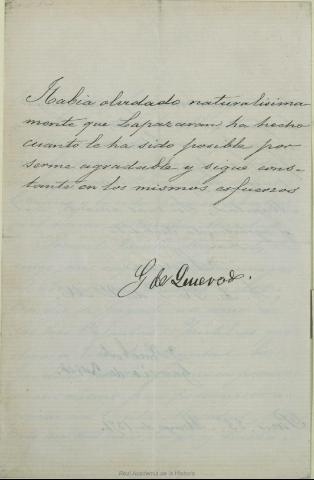 Habia olvidado naturalisima
mente que Lapazaran ha hecho
cuanto le ha sido posible por
serme agradable y sigue cons-
tante en los mismos esfuerzos
G de Quevedo.
Real Academia de la Historia